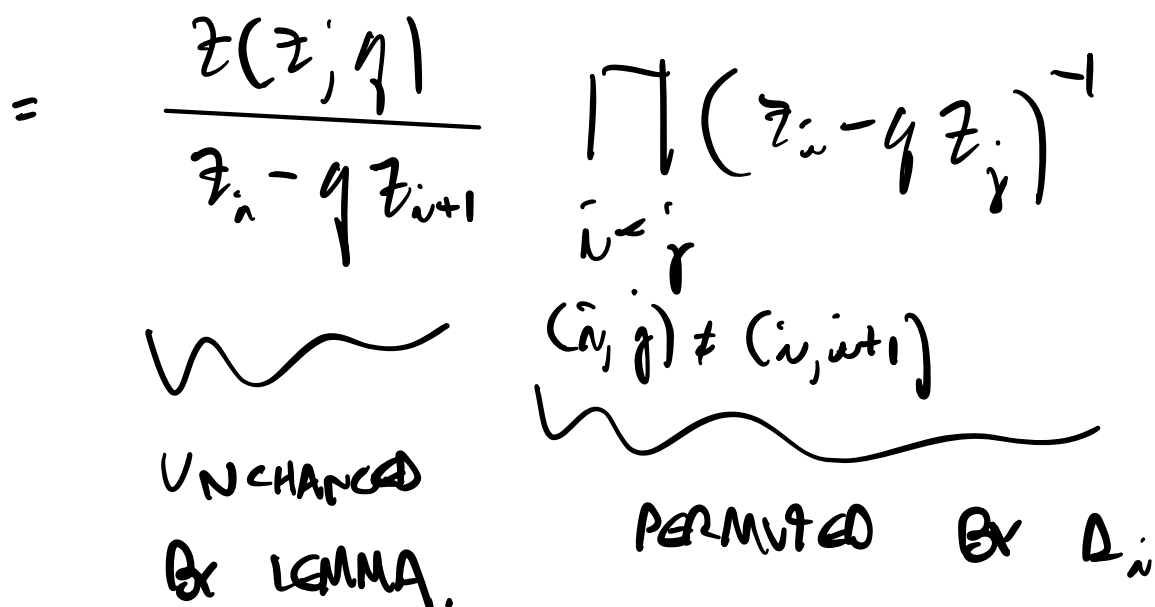 = Z(z; q) / (z_i - q z_{i+1}) ∏ (z_i - q z_j)^{-1}
i < j
(i, j) ≠ (i, i+1)
UNCHANGED
BY LEMMA.
PERMUTED BY s_i